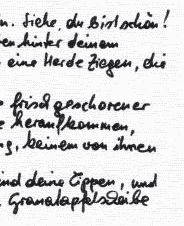 n. Siehe, du bist schön!
en hinter deinem
eine Herde Ziegen, die
frisch geschorener
e heraufkommen,
g, keinem von ihnen
ind deine Lippen, und
Granatapfelscheibe